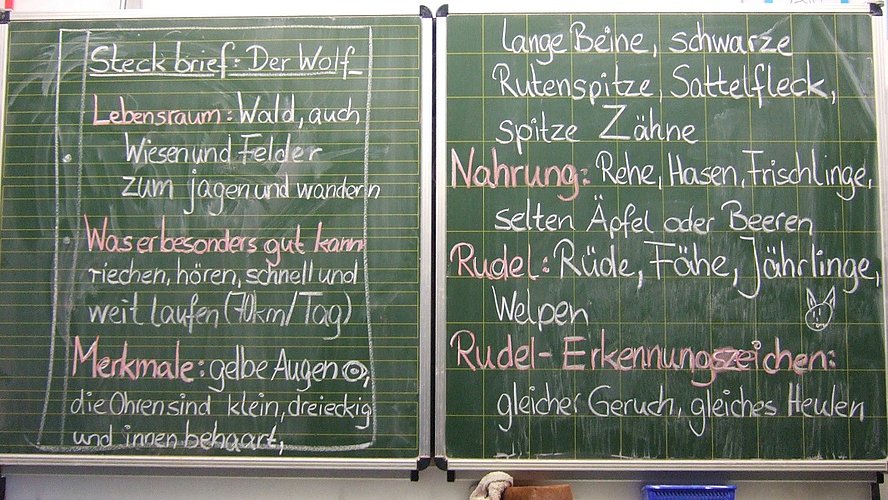 Steckbrief: Der Wolf
Lebensraum: Wald, auch
Wiesen und Felder
zum jagen und wandern
Was er besonders gut kann
riechen, hören, schnell und
weit laufen (70km/Tag)
Merkmale: gelbe Augen,
die Ohren sind klein, dreieckig
und innen behaart,
lange Beine, schwarze
Rutenspitze, Sattelfleck,
spitze Zähne
Nahrung: Rehe, Hasen, Frischlinge,
selten Äpfel oder Beeren
Rudel: Rüde, Fähe, Jährlinge,
Welpen
Rudel-Erkennungszeichen:
gleicher Geruch, gleiches Heulen